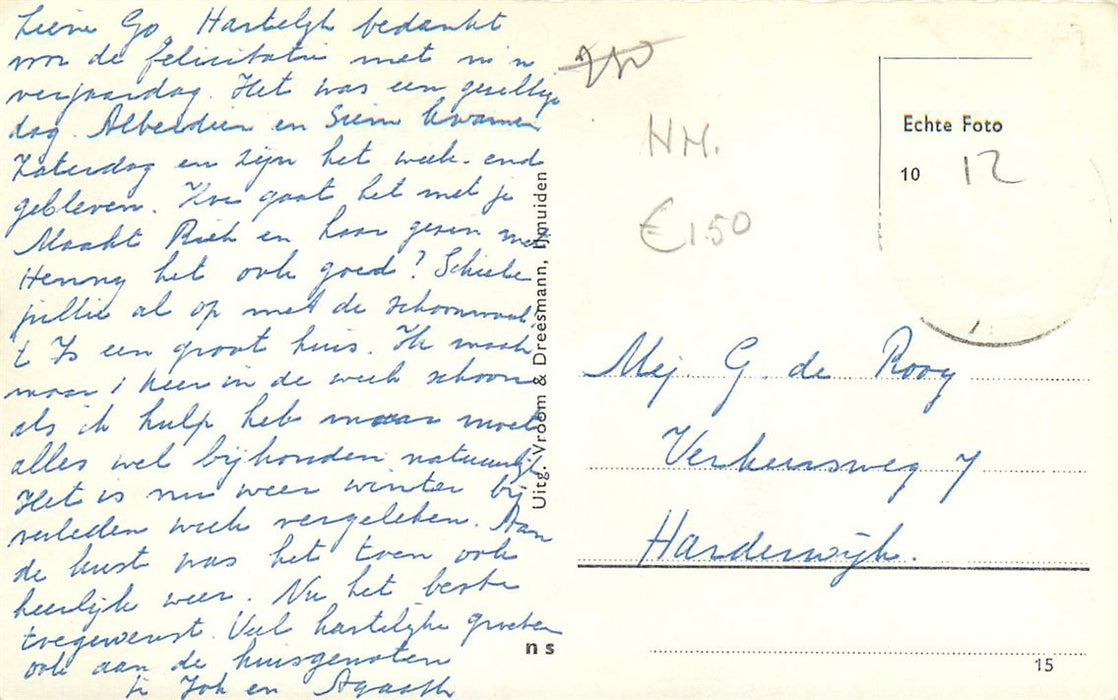 Lieve Go, Hartelijk bedankt
voor de felicitatie met m'n
verjaardag. Het was een gezellige
dag. Alberdien en Siem kwamen
Zaterdag en zijn het week-end
gebleven. Hoe gaat het met je
Maakt Riek en haar gezin met
Henny het ook goed? Schieten
jullie al op met de schoonmaak,
't Is een groot huis. Ik maak
maar 1 keer in de week schoon
als ik hulp heb maar moet
alles wel bijhouden natuurlijk
Het is nu weer winter bij
verleden week vergeleken. Aan
de kust was het toen ook
heerlijk weer. Nu het beste
toegewenst. Veel hartelijke groeten
ook aan de huisgenoten
Joh en Agaath
Uitg. Vroom & Dreesmann, IJmuiden
ns
NH.
€1.50
Echte Foto
10 12
Mej. G. de Rooy
Verkeersweg 7
Harderwijk.
15